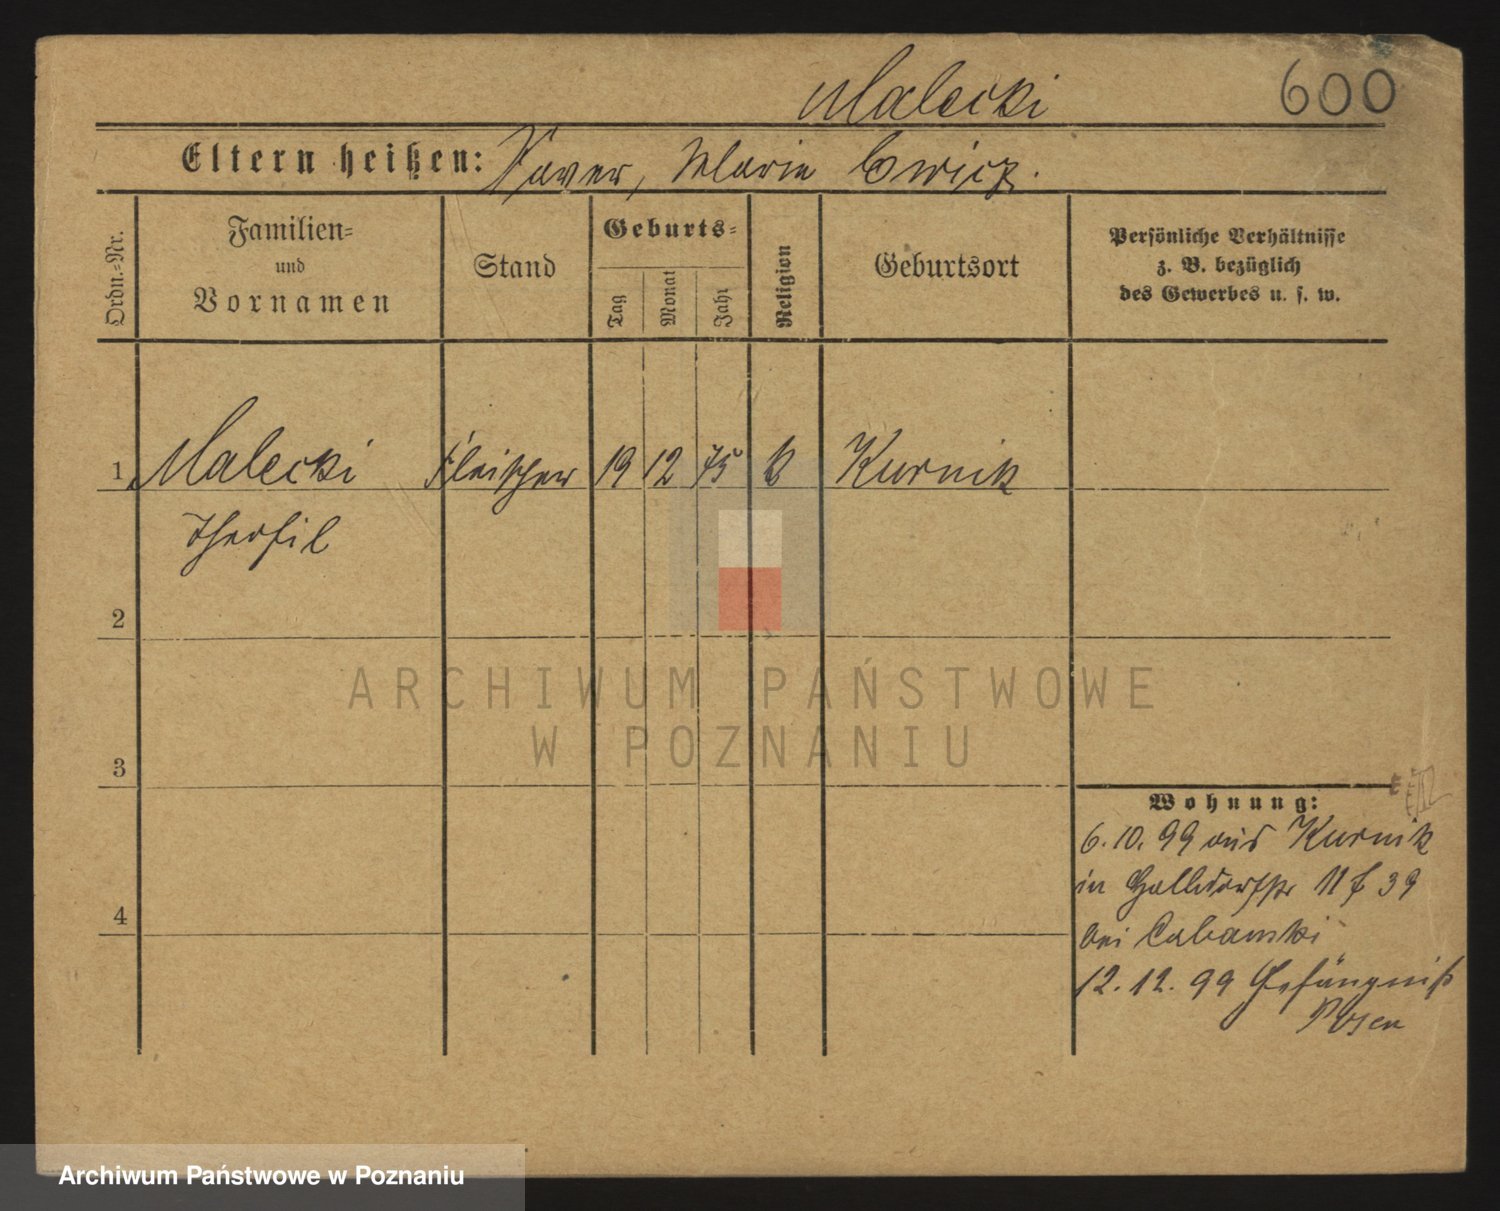 Malecki 600
Eltern heißen: Xaver, Marie Cwicz.
Ordn.-Nr.
Familien- und Vornamen
Stand
Geburts-
Tag Monat Jahr
Religion
Geburtsort
Persönliche Verhältnisse
z. B. bezüglich
des Gewerbes u. s. w.
1 Malecki Fleischer 19 12 75 k Kurnik
Theofil
2
3
4
Wohnung:
6.10.99 aus Kurnik
in 39
bei
12.12.99 Gefängniß
Posen
ARCHIWUM PAŃSTWOWE
W POZNANIU
Archiwum Państwowe w Poznaniu